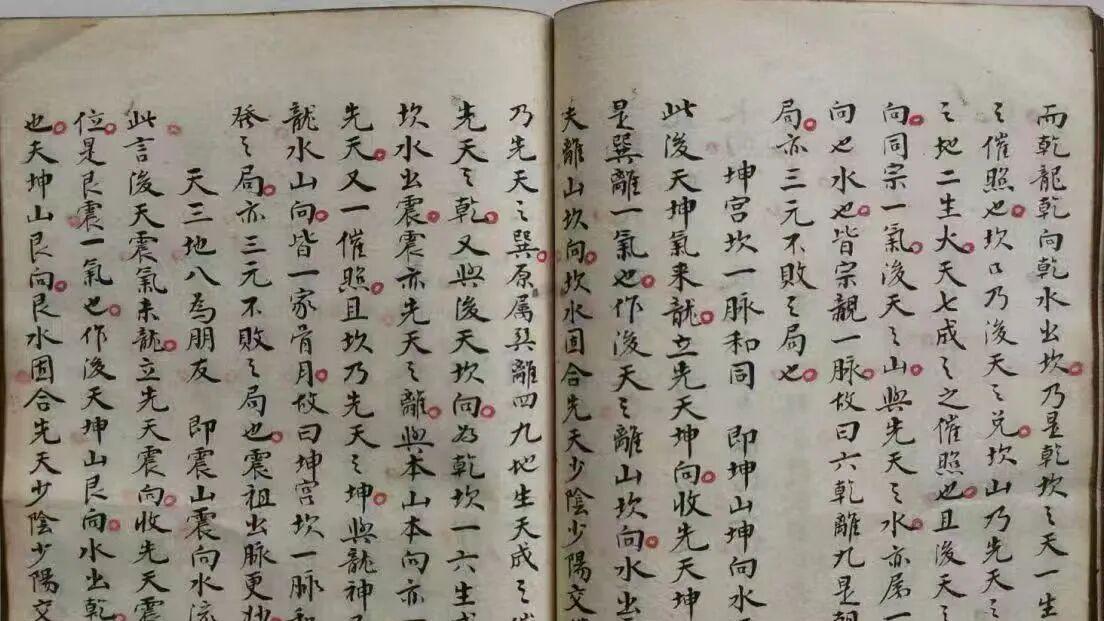 而乾龍乾向乾水出坎乃是乾坎之天一生
之催照也坎口乃後天之兑坎山乃先天之
之地二生火天七成之之催照也且後天之
向同宗一氣後天之山與先天之水亦属一
向也水也皆宗親一脉故曰六乾離九是朝
局亦三元不敗之局也
坤宫坎一脉和同 即坤山坤向水
此後天坤氣来龍立先天坤向收先天坤
是巽離一氣也作後天之離山坎向水出
夫離山坎向坎水固合先天少陰少陽交
乃先天之巽原属巽離四九地生天成之
先天之乾又與後天坎向為乾坎一六生
坎水出震震亦先天之離與本山本向亦
先天又一催照且坎乃先天之坤與龍神
龍水山向皆一家骨月故曰坤宫坎一脉和
發之局亦三元不敗之局也震祖出脉更妙
天三地八為朋友 即震山震向水流
此言後天震氣来龍立先天震向收先天震
位是艮震一氣也作後天坤山艮向水出乾
也夫坤山艮向艮水固合先天少陰少陽交